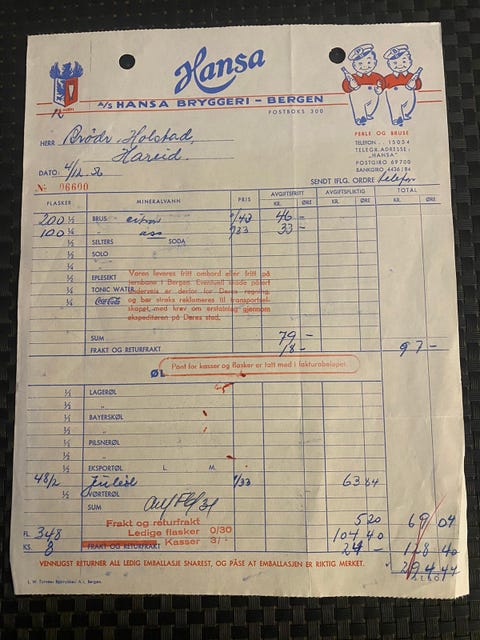 Hansa
A/S HANSA BRYGGERI - BERGEN
POSTBOKS 300
PERLE OG BRUSE
TELEFON . 15054
TELEGR.ADRESSE:
"HANSA"
POSTGIRO 69700
BANKGIRO 4436/84
HERR Brødr. Holstad,
Hareid.
DATO:
SENDT IFLG. ORDRE telefon
No 06600
FLASKER MINERALVANN PRIS AVGIFTSFRITT AVGIFTSPLIKTIG TOTAL
KR. ØRE KR. ØRE KR. ØRE
200 ½ BRUS 46 -
100 ¼ " /33 33 -
½ SELTERS SODA
½ SOLO
¼ "
½ EPLESEKT
¼ TONIC WATER
¼ Coca-Cola
Varen leveres fritt ombord eller fritt på
jernbane i Bergen. Eventuell skade påført
underveis er derfor for Deres regning
og bør straks reklameres til transportsel-
skapet, med krav om erstatning gjennom
ekspeditøren på Deres sted.
SUM 79 -
FRAKT OG RETURFRAKT 18 - 97 -
Pant for kasser og flasker er tatt med i fakturabeløpet.
ØL
½ LAGERØL
½ "
½ BAYERSKØL
½ "
½ PILSNERØL
½ "
½ EKSPORTØL L. M.
48/2 Juleøl 1/33 63 84
½ VØRTERØL
SUM
Frakt og returfrakt 5 20 69 04
FL. 348 Ledige flasker 0/30 104 40
KS. 8 Kasser 3/- 24 - 128 40
FRAKT OG RETURFRAKT
294 44
VENNLIGST RETURNER ALL LEDIG EMBALLASJE SNAREST, OG PÅSE AT EMBALLASJEN ER RIKTIG MERKET.